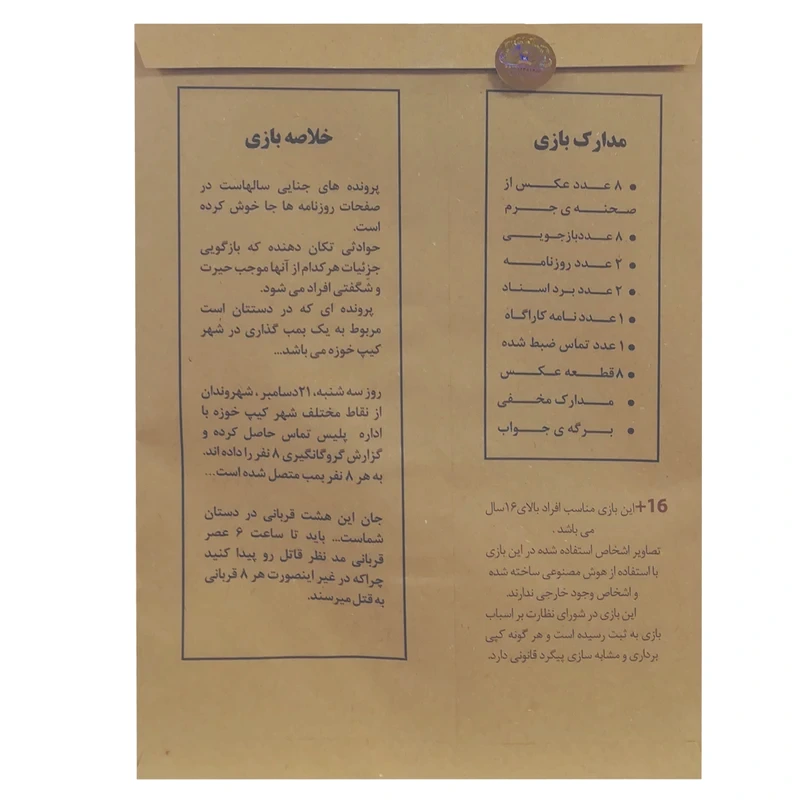 مدارک بازی
● ۸ عدد عکس از
صحنه ی جرم
● ۸ عدد بازجویی
● ۲ عدد روزنامه
● ۲ عدد برد اسناد
● ۱ عدد نامه کاراگاه
● ۱ عدد تماس ضبط شده
● ۸ قطعه عکس
● مدارک مخفی
● برگه ی جواب
+16 این بازی مناسب افراد بالای ۱۶ سال
می باشد .
تصاویر اشخاص استفاده شده در این بازی
با استفاده از هوش مصنوعی ساخته شده
و اشخاص وجود خارجی ندارند.
این بازی در شورای نظارت بر اسباب
بازی به ثبت رسیده است و هر گونه کپی
برداری و مشابه سازی پیگرد قانونی دارد.
خلاصه بازی
پرونده های جنایی سالهاست در
صفحات روزنامه ها جا خوش کرده
است.
حوادثی تکان دهنده که بازگویی
جزئیات هر کدام از آنها موجب حیرت
و شگفتی افراد می شود.
پرونده ای که در دستتان است
مربوط به یک بمب گذاری در شهر
کیپ خوزه می باشد...
روز سه شنبه، ۲۱ دسامبر ، شهروندان
از نقاط مختلف شهر کیپ خوزه با
اداره پلیس تماس حاصل کرده و
گزارش گروگانگیری ۸ نفر را داده اند.
به هر ۸ نفر بمب متصل شده است...
جان این هشت قربانی در دستان
شماست... باید تا ساعت ۶ عصر
قربانی مد نظر قاتل رو پیدا کنید
چراکه در غیر اینصورت هر ۸ قربانی
به قتل میرسند.